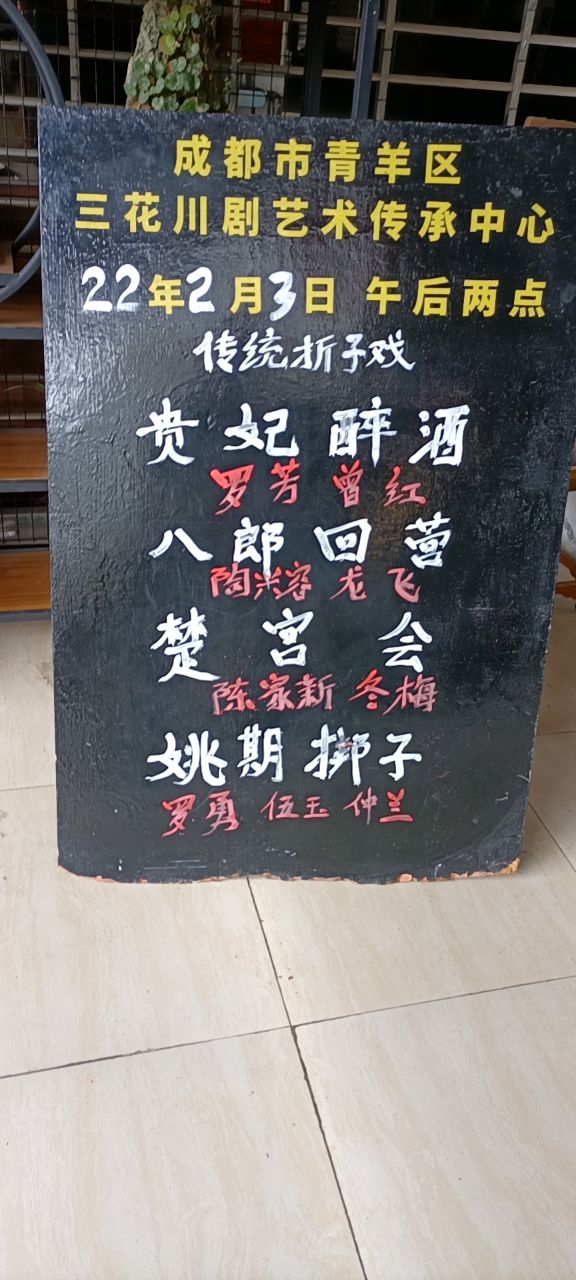 成都市青羊区
三花川剧艺术传承中心
22年2月3日 午后两点
传统折子戏
贵妃醉酒
罗芳 曾红
八郎回营
陶兴容 龙飞
楚宫会
陈家新 冬梅
姚期掷子
罗勇 伍玉 仲兰